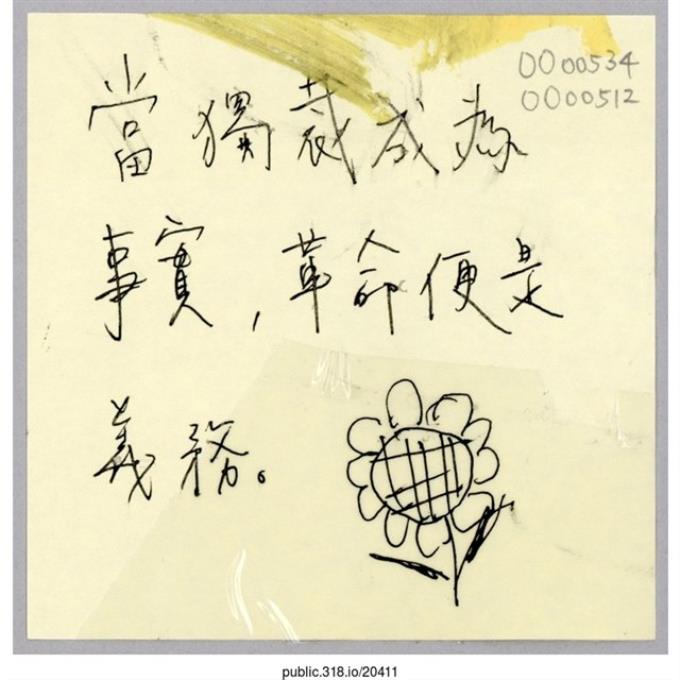 0000534
0000512
當獨裁成為
事實，革命便是
義務。
public.318.io/20411